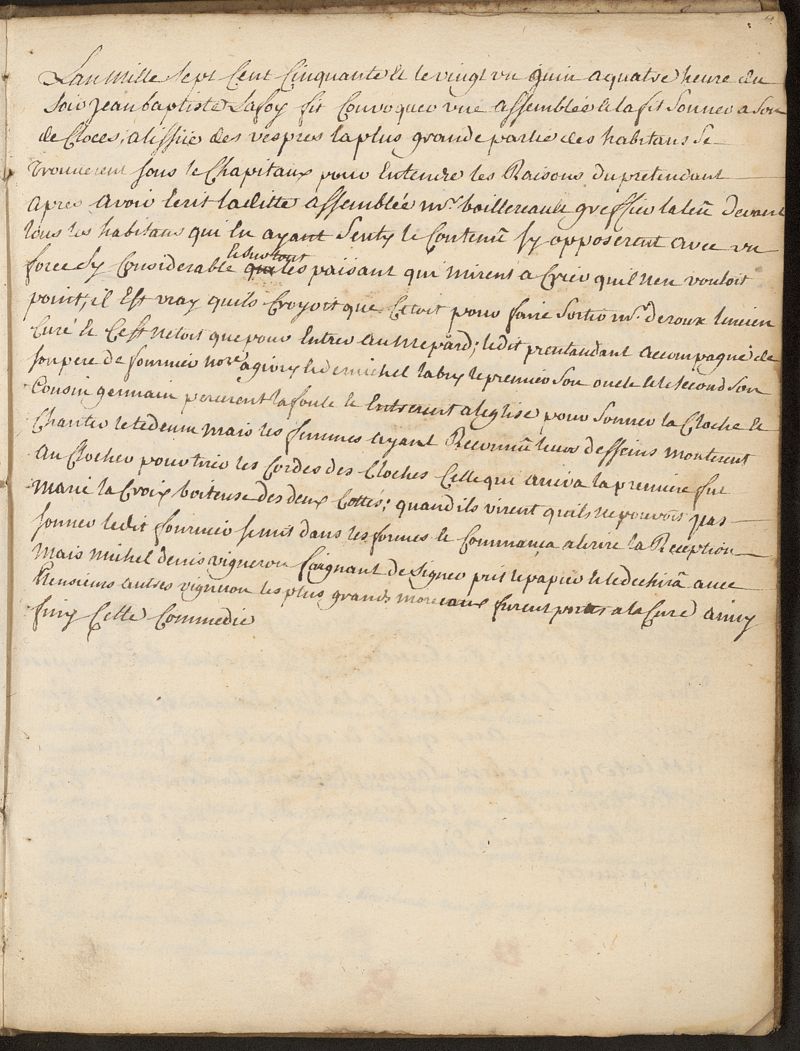 Lan Mille sept Cent Cinquante & le vingt un juin a quatre heure du
soir jean baptiste Lafoy fit Convoquer une assemblée & la fit sonner a son
de Cloces, a lissüe des vespres la plus grande partie des habitans se
trouverent sous le Chapitaux pour Entendre les Raisons du pretendant
apres avoir Ecrit laditte assemblée mr. boillereault greffier la leu devant
tous les habitans qui En ayant senty le Contenu sy opposerent avec un
force sy Considerable & surtout les païsant qui mirent a Crier quil nen vouloit
point; il Est vray quils Croyoit que Cetoit pour faire sortir mr. deroux lancien
Curé & Cest netoit que pour Entrer au; ledit prentandant accompagné de
son pere de fournier nore. a givry & de michel labry le premier son oncle & le second son
Cousin germain percerent la foule & Entrerent a leglise pour sonner la Cloche &
Chanter le tedeum mais les femmes ayant Reconnu leurs desseins monterent
au Clocher pour tirer les Cordes des Cloches Celle qui ariva la premiere fut
marie la Croix boiteuse des deux Cottés; quand ils virent quils ne pouvois pas
sonner ledit fournier se mit dans les formes & Commança a Ecrire la Reception
mais michel denis vigneron Caignant de signer prit le papier & le dechira avec
Plensieurs autres vigneron les plus grands morceaux furent portes a la Cure ainsy
finy Cette Commedie